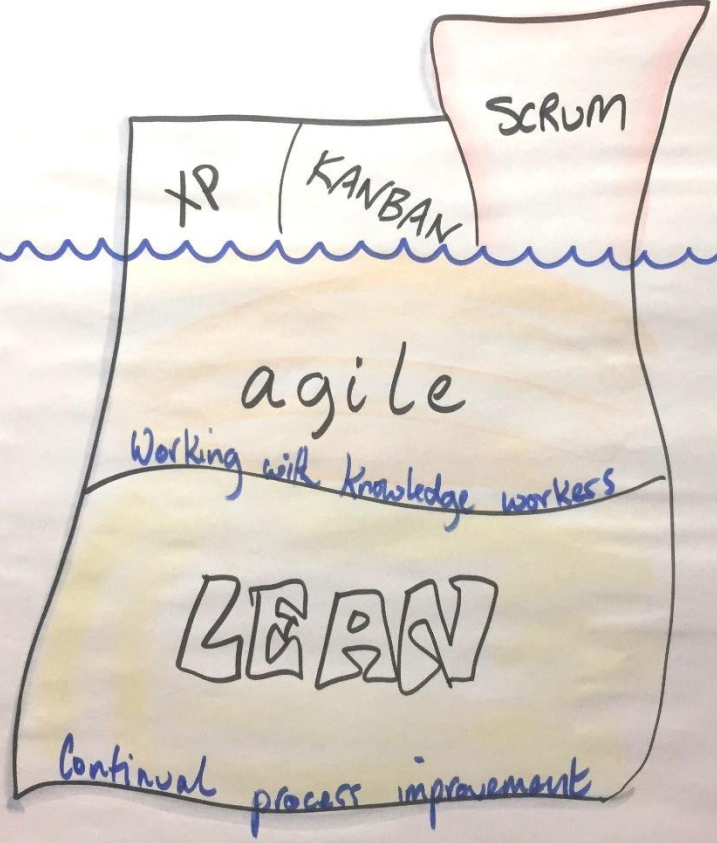 SCRUM
XP
KANBAN
agile
Working with knowledge workers
LEAN
Continual process improvement